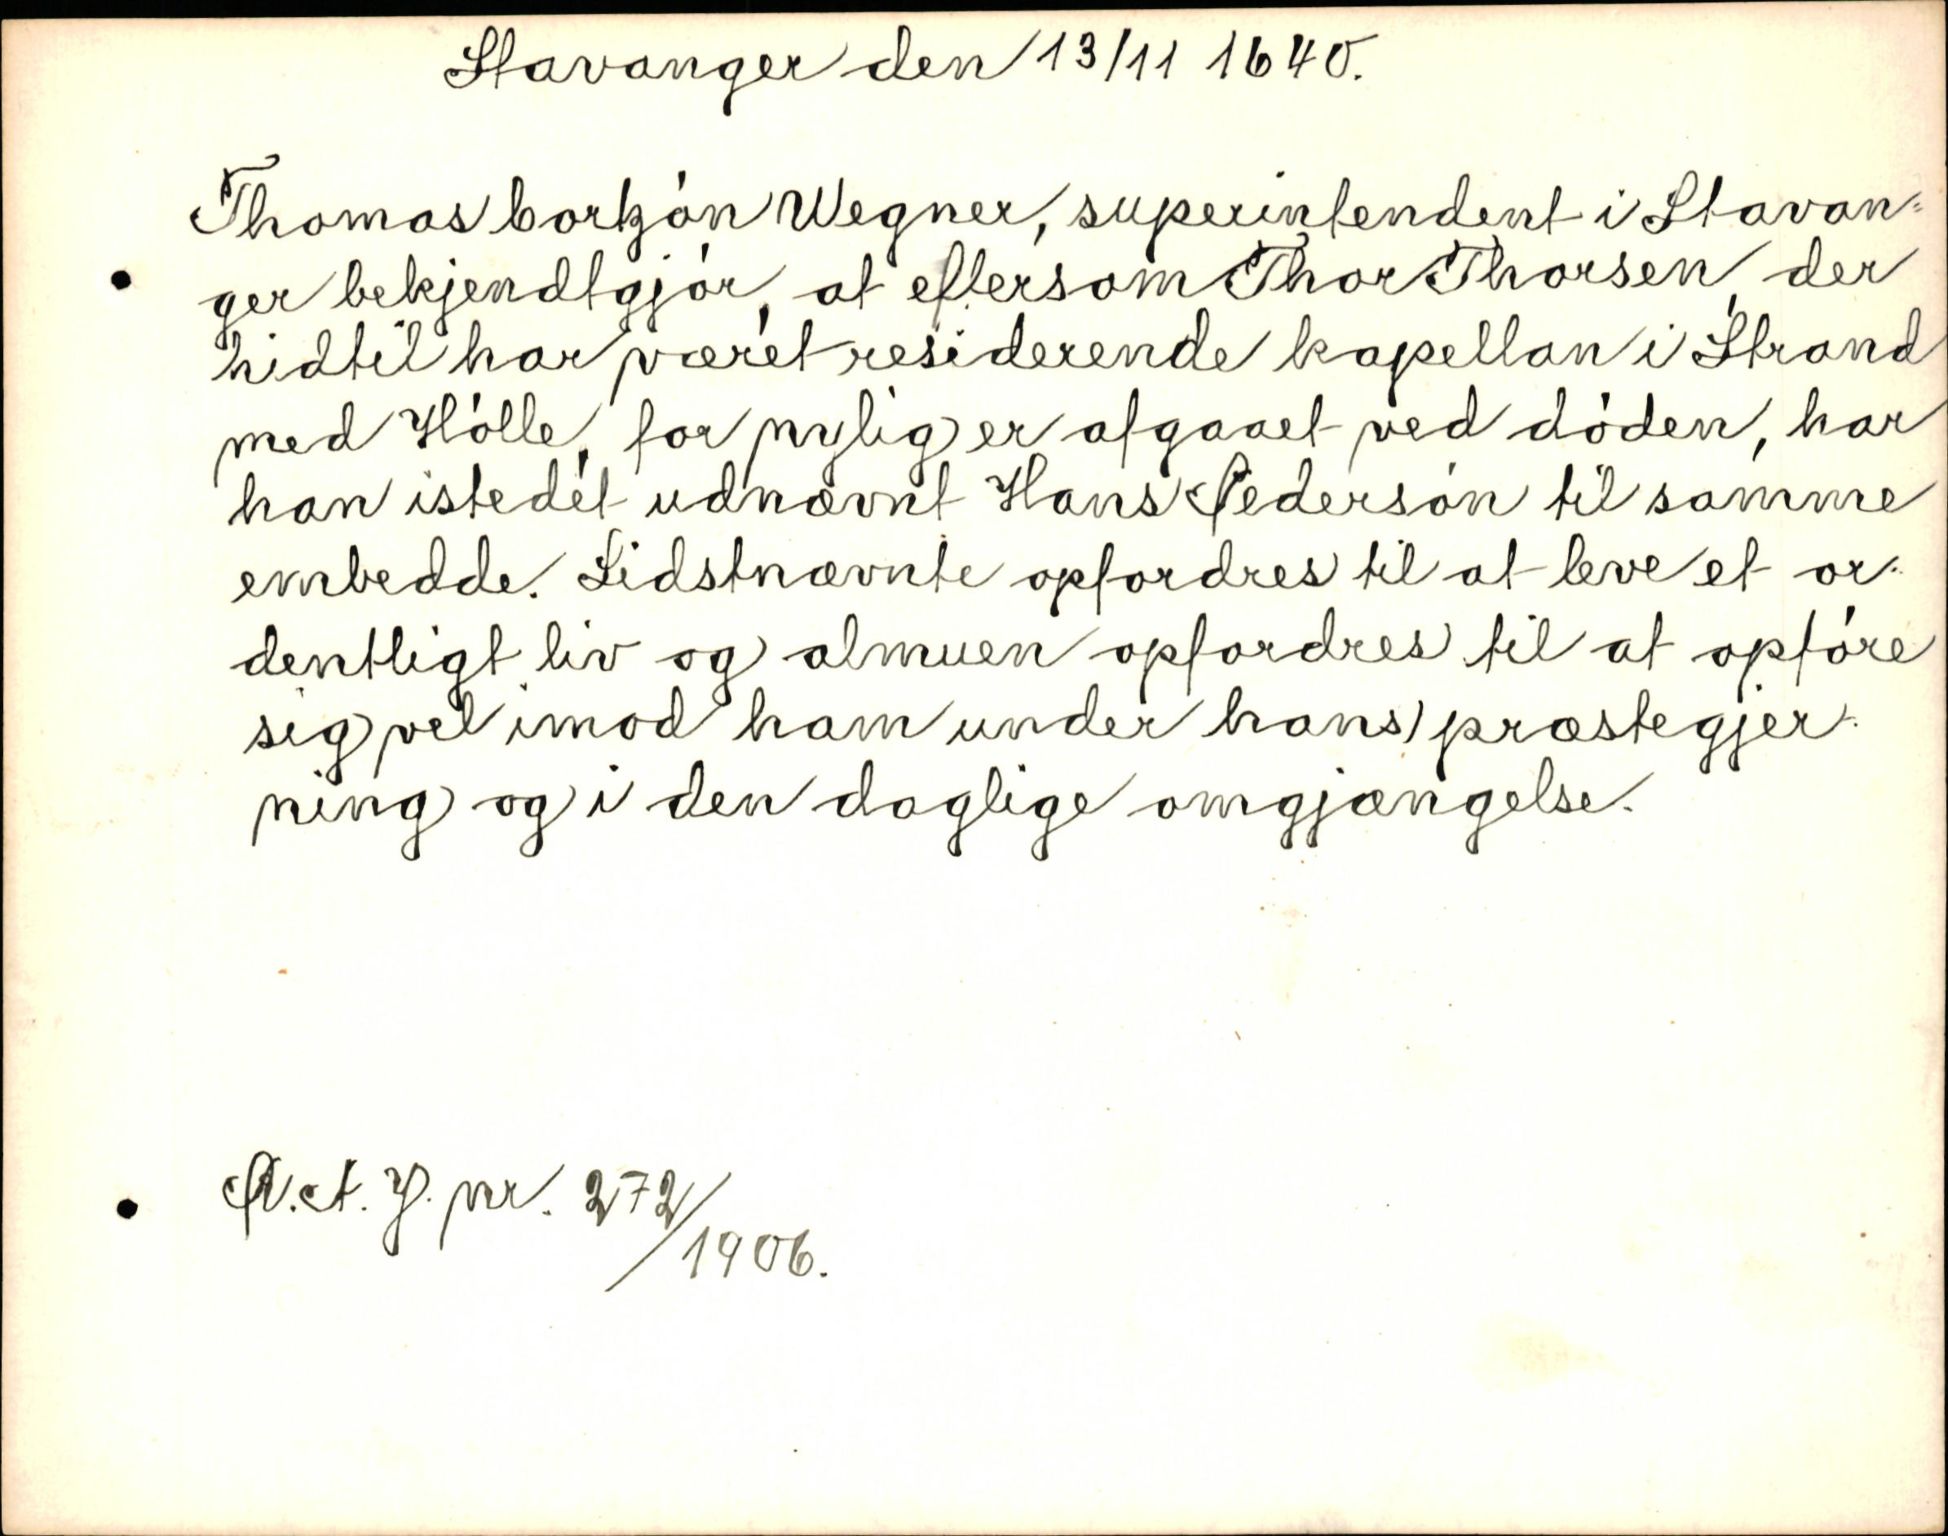 Stavanger den 13/11 1640.
Thomas Cortzön Wegner, superintendent i Stavan-
ger bekjendtgjör, at eftersom Thor Thorsen, der
hidtil har været residerende kapellan i Strand
med Hölle, for nylig er afgaaet ved döden, har
han istedet udnævnt Hans Pedersön til samme
embedde. Sidstnævnte opfordres til at leve et or-
dentligt liv og almuen opfordres til at opföre
sig vel imod ham under hans præstegjer-
ning og i den daglige omgjængelse.
A. A. J. nr. 272/1906.